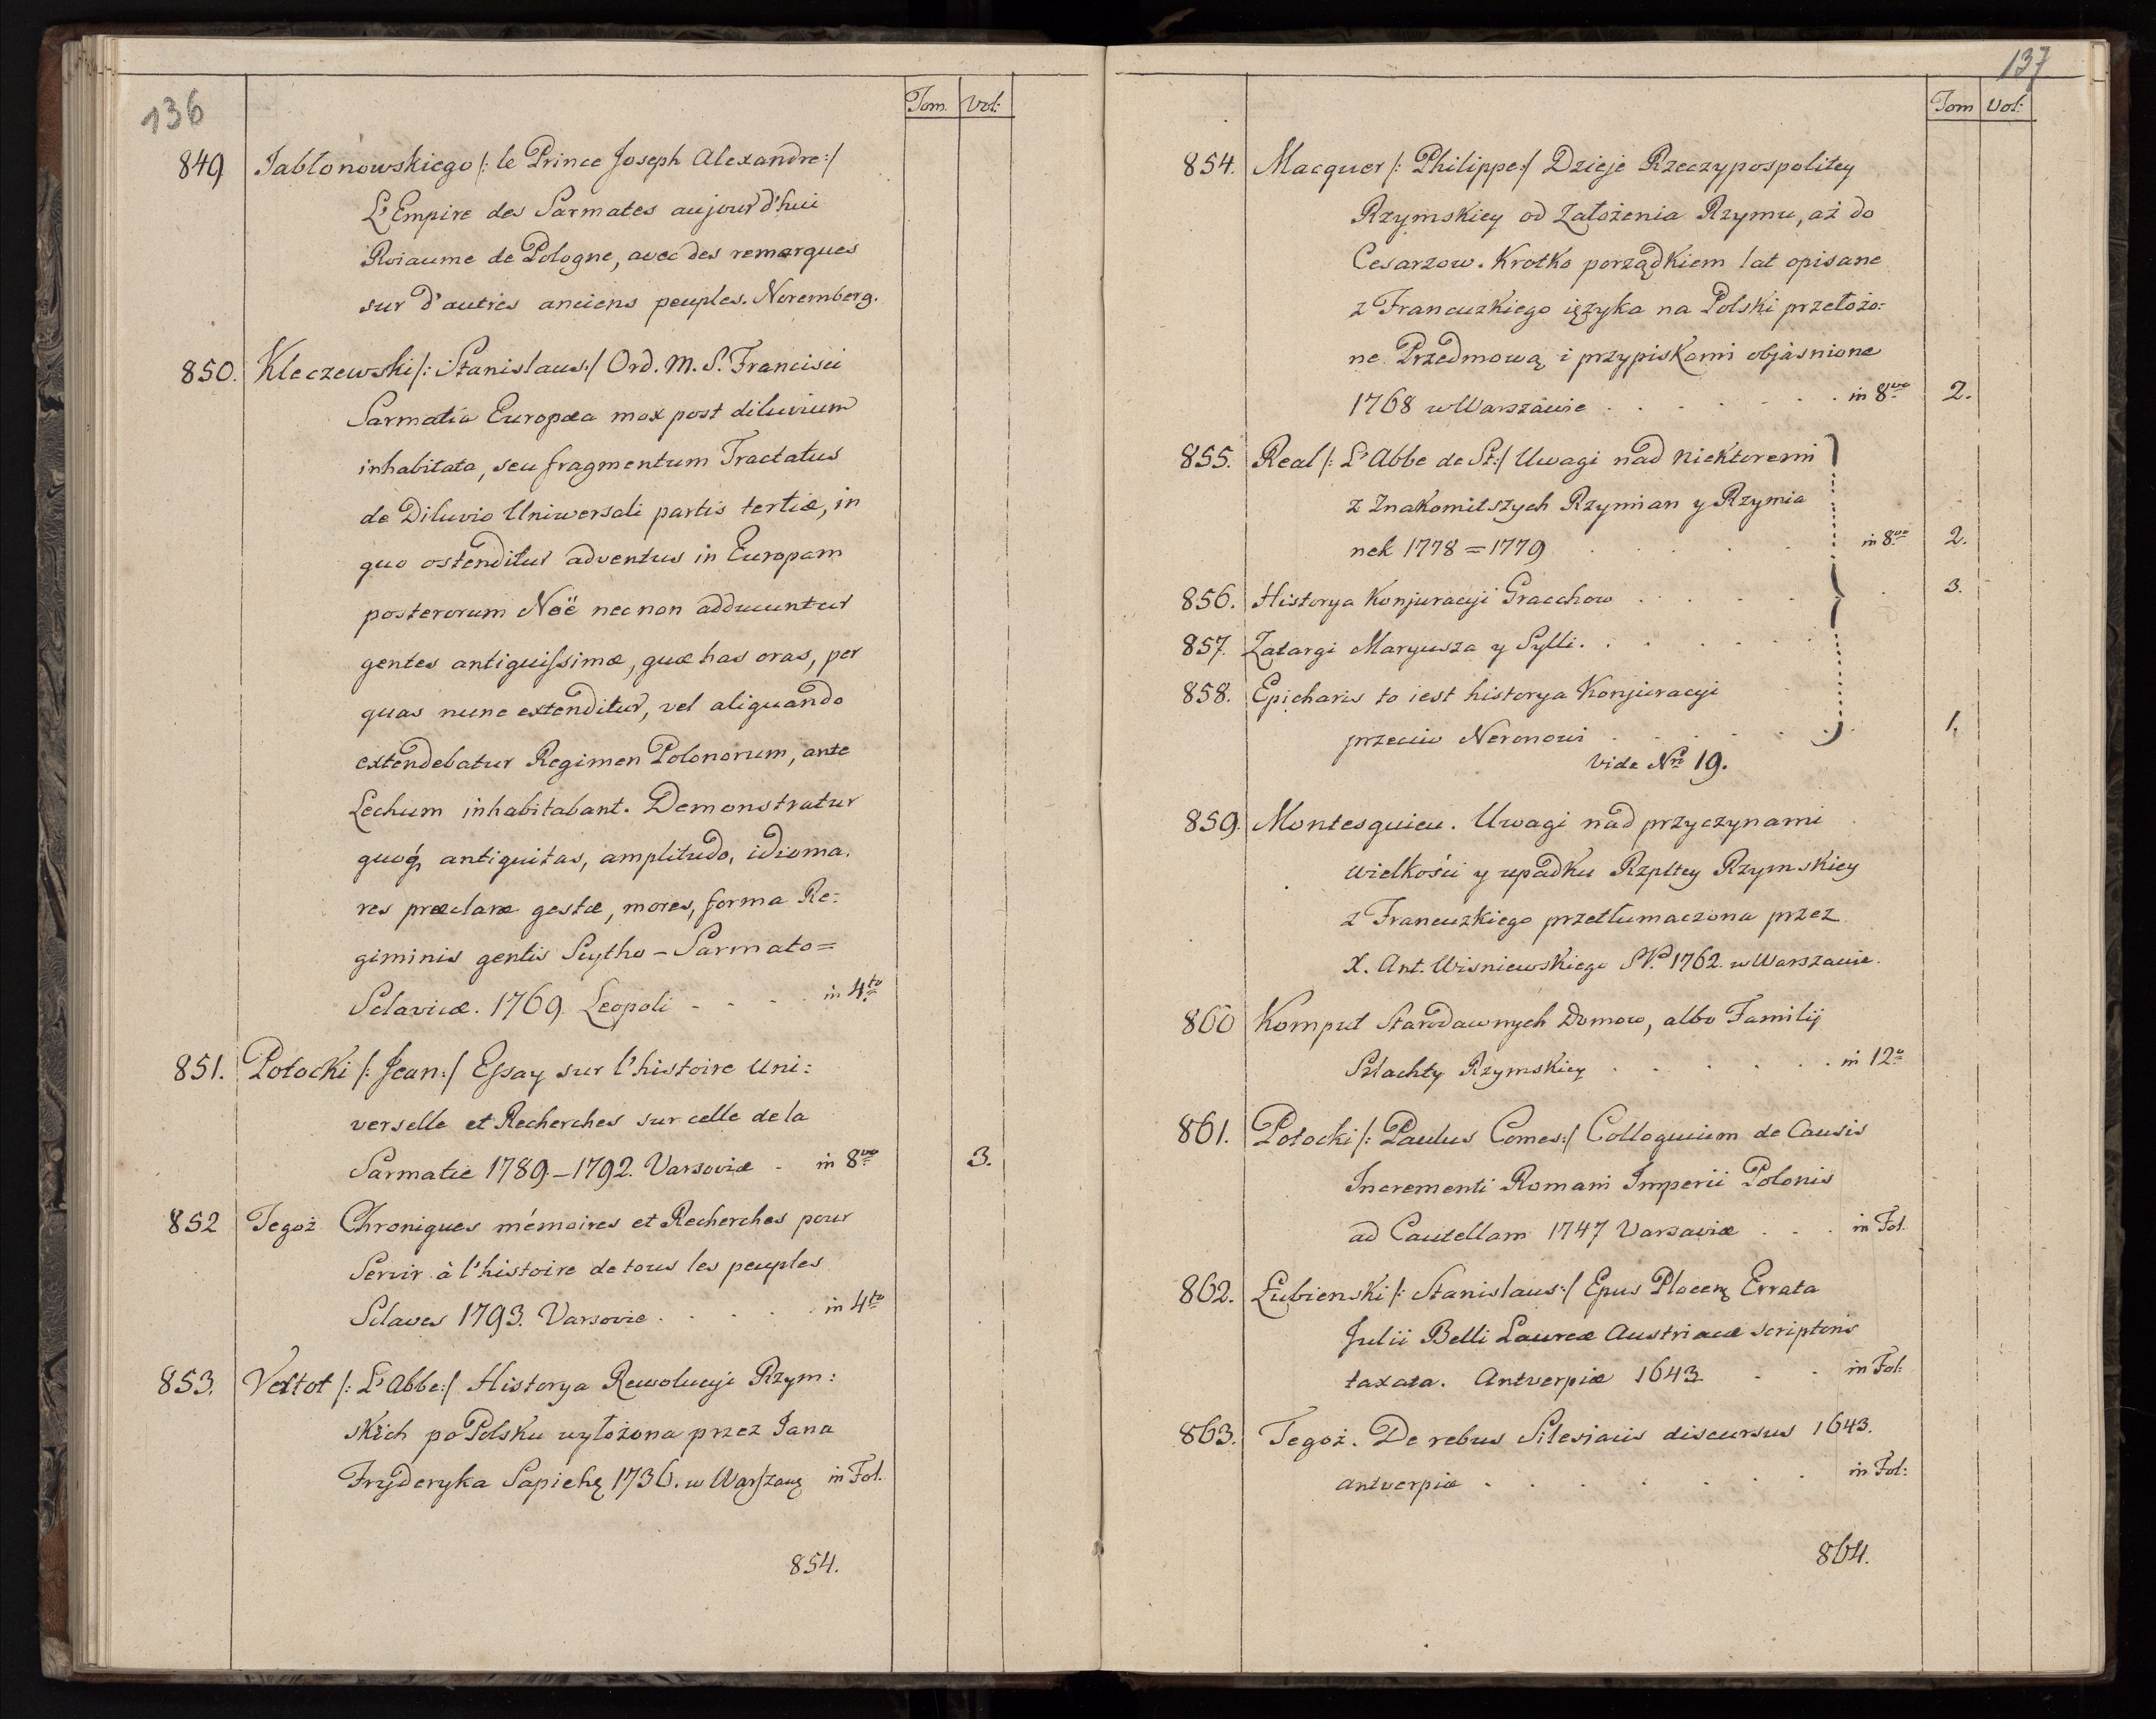 136
Tom. Vol:
849 Jabłonowskiego /: le Prince Joseph Alexandre :/
L'Empire des Sarmates aujourd'hui
Roiaume de Pologne, avec des remarques
sur d'autres anciens peuples. Noremberg.
850. Kleczewski /: Stanislaus :/ Ord. M. S. Francisci
Sarmatia Europæa mox post diluvium
inhabitata, seu fragmentum Tractatus
de Diluvio Uniwersali partis tertiæ, in
quo ostenditur adventus in Europam
posterorum Noë nec non adducuntur
gentes antiquissimæ, quæ has oras, per
quas nunc extenditur, vel aliquando
extendebatur Regimen Polonorum, ante
Lechum inhabitabant. Demonstratur
quoq₃ antiquitas, amplitudo, idioma,
res præclaræ gestæ, mores, forma Re:
giminis gentis Scytho - Sarmato=
Sclavicæ. 1769. Leopoli - - - - in 4to
851. Potocki /: Jean :/ Essay sur l'histoire uni:
verselle et Recherches sur celle de la
Sarmatie 1789.-1792. Varsoviæ - in 8vo 3.
852 Tegoż Chroniques mémoires et Recherches pour
Servir à l'histoire de tous les peuples
Sclaves 1793. Varsovie . . . . in 4to
853. Vertot /: L'Abbe :/ Historya Rewolucyi Rzym:
skich po Polsku wyłożona przez Jana
Fryderyka Sapiehę 1736. w Warszawę in Fol.
854.
137
Tom Vol:
854. Macquer /: Philippe :/ Dzieje Rzeczypospolitey
Rzymskiey od Założenia Rzymu, aż do
Cesarzow. Krotko porządkiem lat opisane
z Francuzkiego ięzyka na Polski przełożo:
ne. Przedmową i przypiskami objasnione
1768 w Warszawie . . . . . . in 8vo 2.
855. Real /: L'Abbe de St :/ Uwagi nad niektoremi
z Znakomitszych Rzymian y Rzymia
nek 1778=1779 . . . . . in 8vo 2.
856. Historya Konjuracyi Gracchow . . . . . 3.
857. Zatargi Maryusza y Sylli . . . . . .
858. Epicharis to iest historya Konjuracyi
przeciw Neronowi . . . . . . 1.
Vide No 19.
859. Montesquieu. Uwagi nad przyczynami
wielkości y upadku Rzpltey Rzymskiey
z Francuzkiego przetłumaczona przez
X. Ant. Wisniewskiego S.P. 1762. w Warszawie.
860 Komput Starodawnych Domow, albo Familij
Szlachty Rzymskiey . . . . . . in 12o
861. Potocki /: Paulus Comes :/ Colloquium de Causis
Incrementi Romani Imperii Polonis
ad Cautellam 1747 Varsaviæ . . . in Fol.
862. Łubienski /: Stanislaus :/ Epus Plocen₃ Errata
Julii Belli Laureæ Austriacæ scriptoris
taxata. Antverpiæ 1643 . . in Fol:
863. Tegoż. De rebus Silesiacis discursus 1643.
Antverpiæ . . . . . . . in Fol:
864.